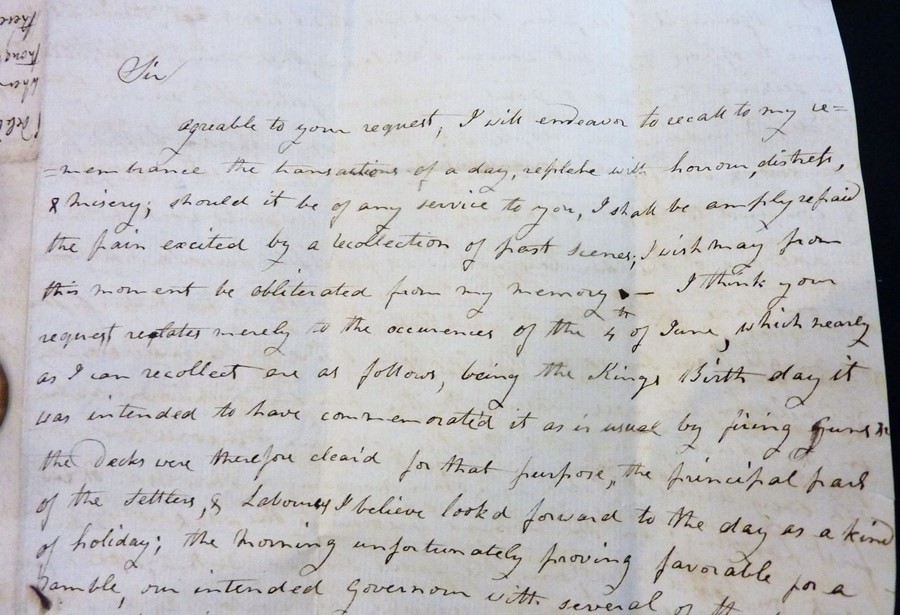 Sir
agreable to your request, I will endeavor to recall to my re=
=membrance the transactions of a day, replete with horrour, distress,
& misery; should it be of any service to you, I shall be amply repaid
the pain excited by a recollection of past scenes, I wish may from
this moment be obliterated from my memory. — I think your
request relates merely to the occurences of the 4th of June, which nearly
as I can recollect are as follows, being the Kings Birth day it
was intended to have commemorated it as is usual by firing Guns &c
the Decks were therefore clear'd for that purpose, the principal part
of the Settlers, & Labourers I believe look'd forward to the day as a kind
of holiday; the Morning unfortunately proving favorable for a
ramble, our intended Governour with several of the